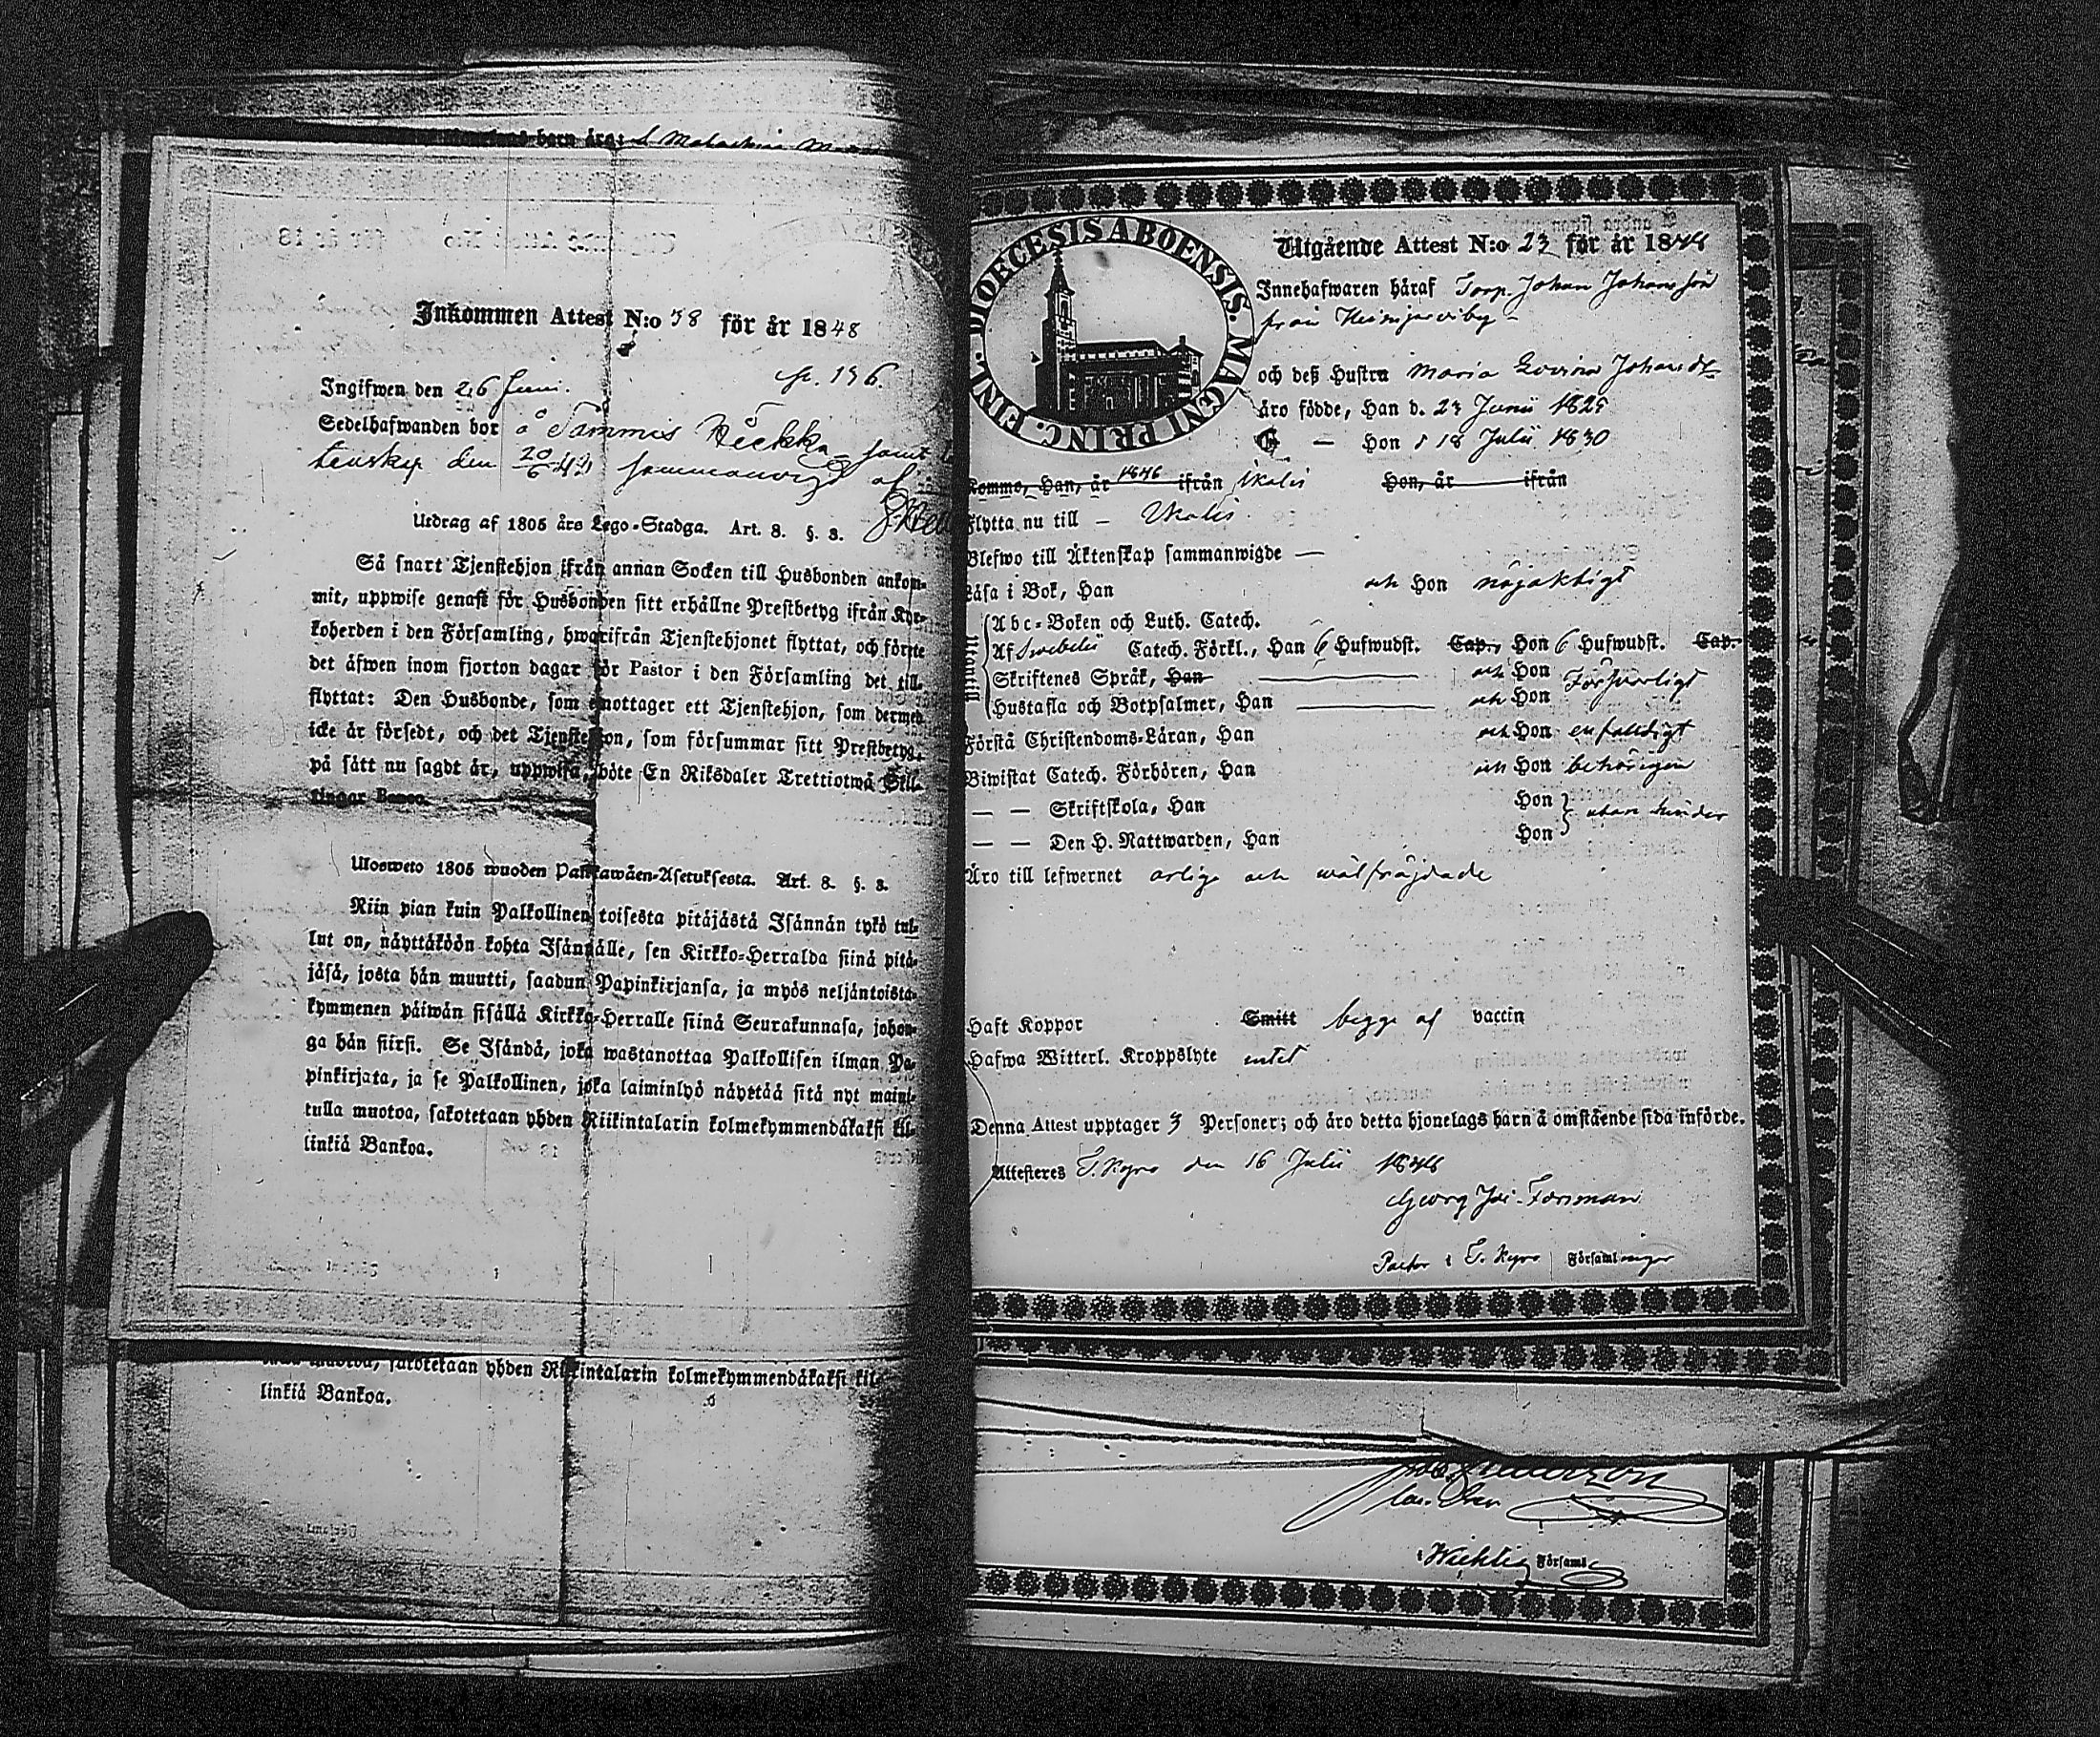 barn äro;
Inkommen Attest N:o 38 för år 1848
Ingifwen den 26 Juni.
Sedelhafwanden bor å Tammis
tenskap den 20/6 sammanvigd af
Utdrag af 1805 års Lego-Stadga. Art. 8. §. 3.
Så snart Tjenstehjon ifrån annan Socken till Husbonden ankom-
mit, uppwise genast för Husbonden sitt erhållne Prestbetyg ifrån Kyr-
koherden i den Församling, hwarifrån Tjenstehjonet flyttat, och förete
det äfwen inom fjorton dagar för Pastor i den Församling det till-
flyttat: Den Husbonde, som emottager ett Tjenstehjon, som dermed
icke är försedt, och det Tjenstehjon, som försummar sitt Prestbetyg,
på sätt nu sagdt är, uppwisa, böte En Riksdaler Trettiotwå Skil-
lingar Banco.
Ulosweto 1805 wuoden Palkkawäen-Asetuksesta. Art. 8. §. 3.
Niin pian kuin Palkollinen toisesta pitäjästä Isännän tykö tul-
lut on, näyttäköön kohta Isännälle, sen Kirkko-Herralda siinä pitä-
jäsä, josta hän muutti, saadun Papinkirjansa, ja myös neljäntoista-
kymmenen päiwän sisällä Kirkko-Herralle siinä Seurakunnasa, johon-
ga hän siirsi. Se Isändä, joka wastanottaa Palkollisen ilman Pa-
pinkirjata, ja se Palkollinen, joka laiminlyö näyttää sitä nyt maini-
tulla muotoa, sakotetaan yhden Riikintalarin kolmekymmendäkaksi kil-
linkiä Bankoa.
sakotetaan yhden Riikintalarin kolmekymmendäkaksi kil-
linkiä Bankoa.
DIOECESIS ABOENSIS. MAGNI PRINC. FINL.
Utgående Attest N:o 23 för år 1848
Innehafwaren häraf Torp. Johan Johansson
från
och deß Hustru Maria Lovisa Johansdr
äro födde, Han d. 23 Junii 1825
Hon d 18 Julii 1830
Kommo, Han, år 1846 ifrån Ikalis Hon, år ifrån
Flytta nu till – Ikalis
Blefwo till Äktenskap sammanwigde —
Läsa i Bok, Han och Hon nöjaktigt
Utantill
Abc-Boken och Luth. Catech.
Af Svebelii Catech. Förkl., Han 6 Hufwudst. Cap., Hon 6 Hufwudst. Cap.
Skriftenes Språk, Han och Hon Försvarligt
Hustafla och Botpsalmer, Han och Hon
Förstå Christendoms-Läran, Han och Hon enfaldigt
Biwistat Catech. Förhören, Han och Hon behörigen
— — Skriftskola, Han Hon
— — Den H. Nattwarden, Han Hon
Äro till lefwernet ärlige och wälfräjdade
Haft Koppor Smitt begge af vaccin
Hafwa Witterl. Kroppslyte intet
Denna Attest upptager 3 Personer; och äro detta hjonelags barn å omstående sida införde.
Attesteres T. Kyro den 16 Julii 1848
Georg Joh. Forsman
Pastor i T. Kyro Församlingar
i Wichtis FörSaml.